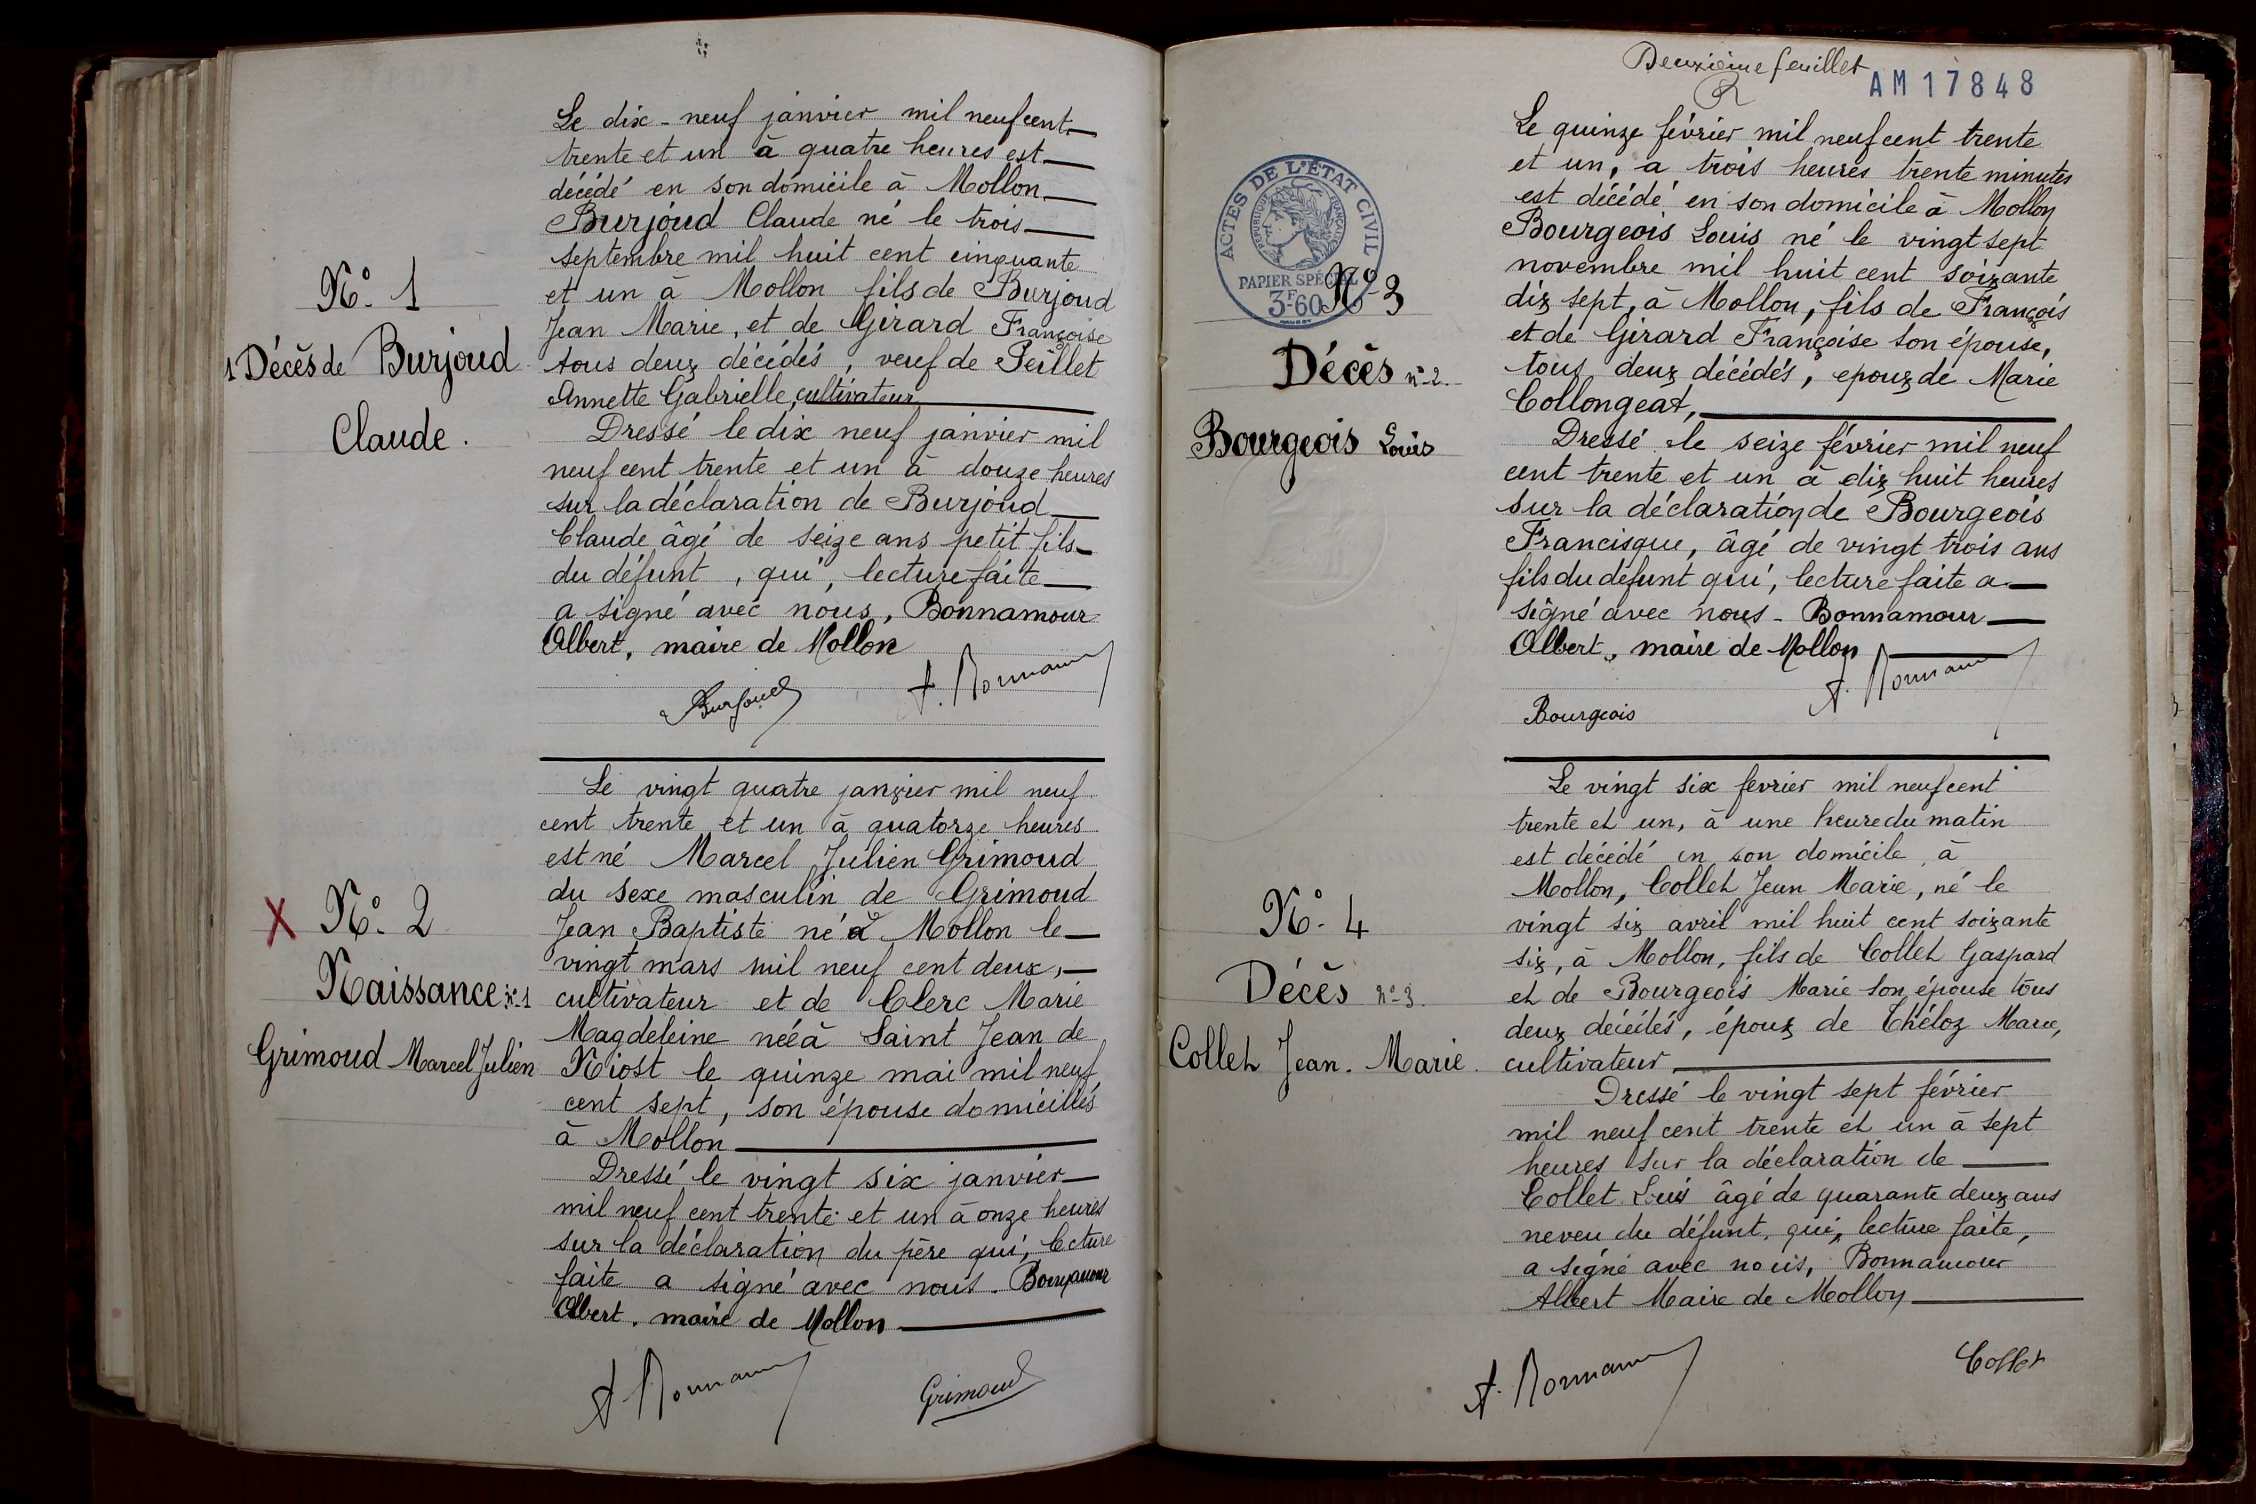 Le dix-neuf janvier mil neuf cent
trente et un à quatre heures est
décédé en son domicile à Mollon
Burjoud Claude né le trois
septembre mil huit cent cinquante
et un à Mollon fils de Burjoud
Jean Marie, et de Girard Françoise
tous deux décédés, veuf de Peillet
Annette Gabrielle, cultivateur
Dressé le dix neuf janvier mil
neuf cent trente et un à douze heures
sur la déclaration de Burjoud
Claude âgé de seize ans petit fils
du défunt, qui, lecture faite
a signé avec nous, Bonnamour
Albert, maire de Mollon
Burjoud A. Bonnamour
N° 1
1 Décès de Burjoud
Claude.
Le vingt quatre janvier mil neuf
cent trente et un à quatorze heures
est né Marcel Julien Grimoud
du sexe masculin de Grimoud
Jean Baptiste né à Mollon le
vingt mars mil neuf cent deux,
cultivateur et de Clerc Marie
Magdeleine née à Saint Jean de
Niost le quinze mai mil neuf
cent sept, son épouse domiciliés
à Mollon
Dressé le vingt six janvier
mil neuf cent trente et un à onze heures
sur la déclaration du père qui, lecture
faite a signé avec nous. Bonnamour
Albert, maire de Mollon
A. Bonnamour Grimoud
X N° 2
Naissance n° 1
Grimoud Marcel Julien
Deuxième feuillet
AM 17848
Le quinze février mil neuf cent trente
et un, a trois heures trente minutes
est décédé en son domicile à Mollon
Bourgeois Louis né le vingt sept
novembre mil huit cent soixante
dix sept, à Mollon, fils de François
et de Girard Françoise son épouse,
tous deux décédés, epoux de Marie
Collongeat,
Dressé le seize février mil neuf
cent trente et un à dix huit heures
sur la déclaration de Bourgeois
Francisque, âgé de vingt trois ans
fils du défunt qui, lecture faite a
signé avec nous - Bonnamour
Albert, maire de Mollon
A. Bonnamour
Bourgeois
ACTES DE L'ÉTAT CIVIL
RÉPUBLIQUE FRANÇAISE
PAPIER SPÉCIAL
3F60
N° 3
Décès n° 2.
Bourgeois Louis
Le vingt six fevrier mil neuf cent
trente et un, à une heure du matin
est décédé en son domicile à
Mollon, Collet Jean Marie, né le
vingt six avril mil huit cent soixante
six, à Mollon, fils de Collet Gaspard
et de Bourgeois Marie son épouse tous
deux décédés, époux de Théloz Marie,
cultivateur
Dressé le vingt sept février
mil neuf cent trente et un à sept
heures sur la déclaration de
Collet Louis âgé de quarante deux ans
neveu du défunt, qui, lecture faite,
a signé avec nous, Bonnamour
Albert Maire de Mollon
A. Bonnamour Collet
N° 4
Décès n° 3.
Collet Jean-Marie.